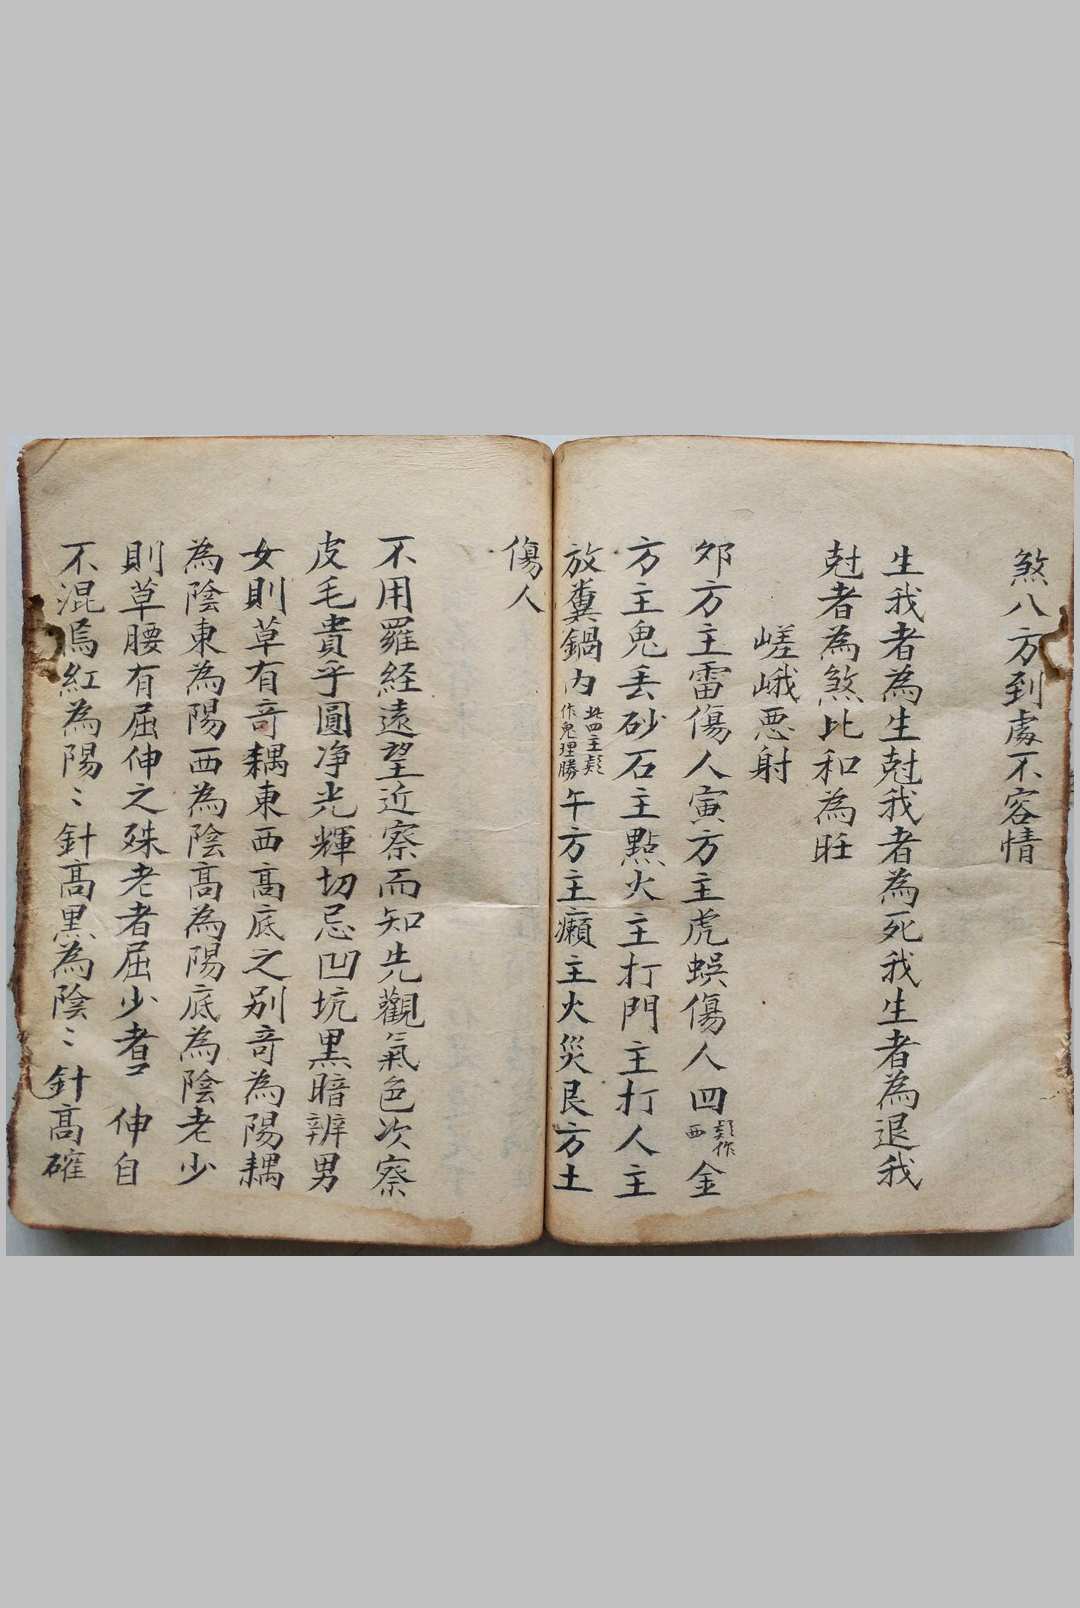 煞八方到處不容情
生我者為生尅我者為死我生者為退我
尅者為煞比和為旺
嵯峨惡射
夘方主雷傷人寅方主虎蜈傷人四
作西
金
方主鬼丢砂石主點火主打門主打人主
放糞鍋內
此四主
作鬼理勝
午方主癩主火災艮方土
傷人
不用羅経遠望近察而知先觀氣色次察
皮毛貴乎圓净光輝切忌凹坑黑暗辨男
女則草有竒耦東西高底之别竒為陽耦
為陰東為陽西為陰高為陽底為陰老少
則草腰有屈伸之殊老者屈少者伸自
不混焉紅為陽〻針高黑為陰〻針高確